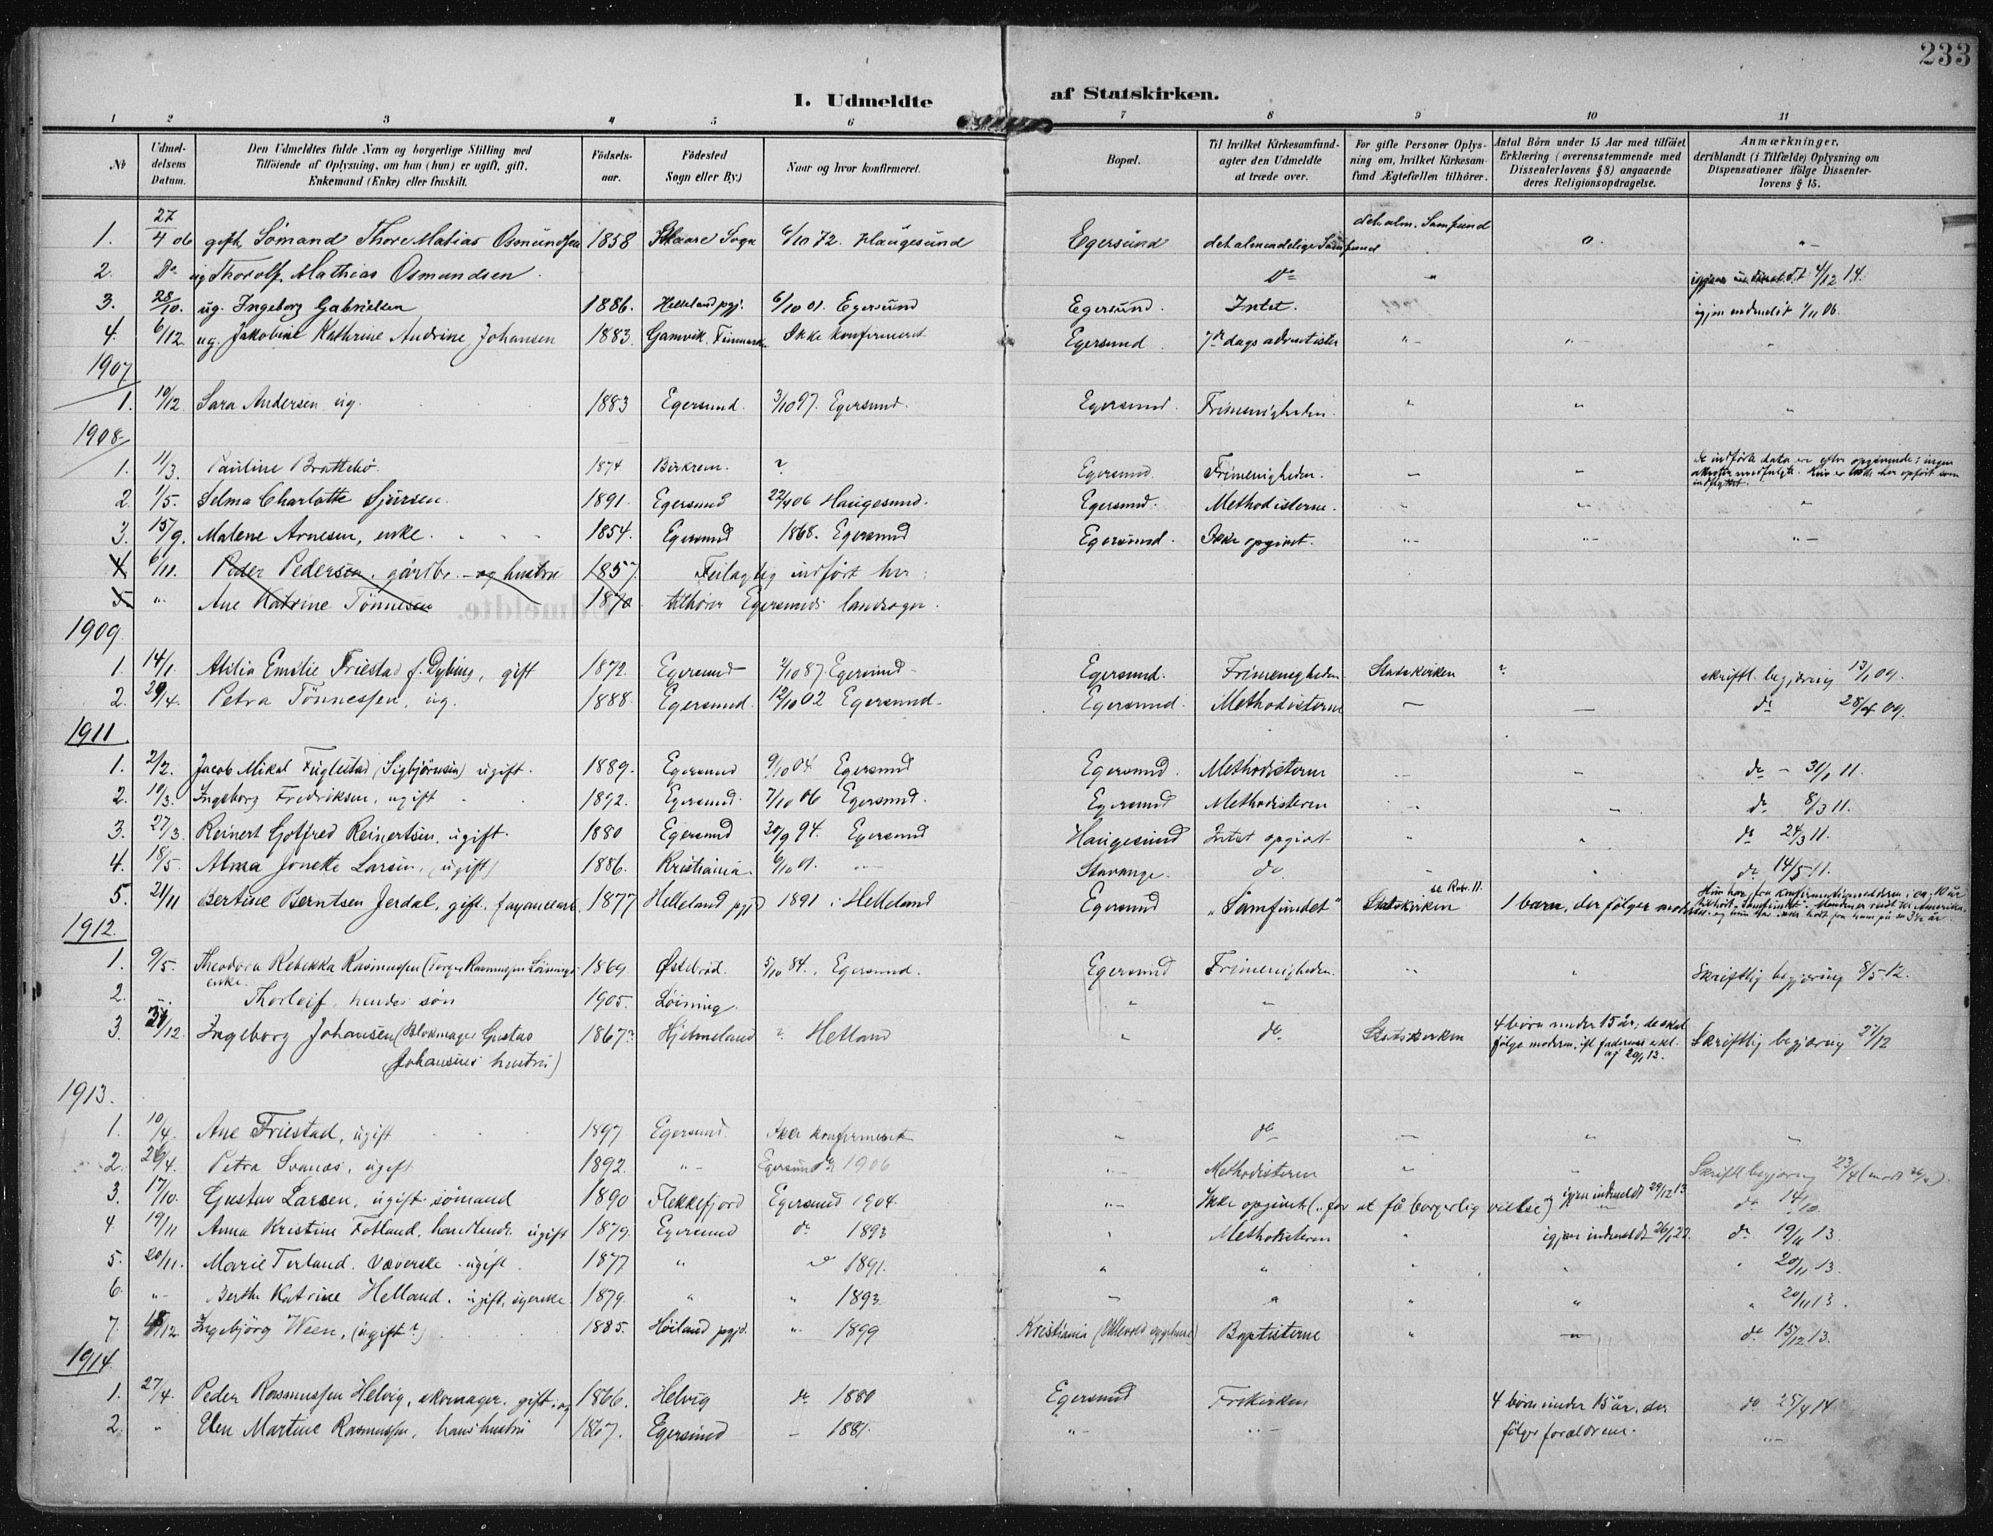 233
I. Udmeldte af Statskirken.
1 2 3 4 5 6 7 8 9 10 11
No
Udmel-
delsens
Datum.
Den Udmeldtes fulde Navn og borgerlige Stilling med
Tilföiende af Oplysning, om han (hun) er ugift, gift,
Enkemand (Enke) eller fraskilt.
Födsels-
aar.
Födested
Sogn eller By.)
Naar og hvor konfirmeret.
Bopæl.
Til hvilket Kirkesamfund-
agter den Udmeldte
at træde over.
For gifte Personer Oplys-
ning om, hvilket Kirkesam-
fund Ægtefællen tilhörer.
Antal Börn under 15 Aar med tilföiet
Erklæring (overensstemmende med
Dissenterlovens § 8) angaaende
deres Religionsopdragelse.
Anmærkninger,
deriblandt (i Tilfælde) Oplysning om
Dispensationer ifölge Dissenter-
lovens § 15.
1. 27/4 06 gift Sömand Thore Matias Osmundsen 1858 Skaare Sogn 6/10 72. Haugesund Egersund det almindelige Samfund det alm. Samfund 0. "-
2. Do ug Thorolf Mathias Osmundsen Do " igjen indmeldt 4/12 14.
3. 28/10. ug. Ingeborg Gabrielsen 1886. Helleland pgj. 6/10 01. Egersund Egersund. Intet. igjen indmeldt 4/11 06.
4. 6/12 ug. Jakobine Kathrine Andrine Johansen 1883. Gamvik. Finmark Ikke konfirmeret Egersund 7de dags adventister "- "- "
1907
1. 10/12 Sara Andersen ug. 1883 Egersund. 3/10 97. Egersund. Egersund. Frimenigheden. " " "
1908
1. 11/3. Pauline Brattebö. 1874 Birkrem. ? Egersund. Frimenigheden. - " De indförte data er efter opgivende; ingen
attester medfulgte. Hun er ikke her opfört som
indflyttet.
2. 1/5. Selma Charlotte Sjursen. 1891. Egersund 22/4 06 Haugesund. Egersund. Methodisterne. " " "
3. 15/9. Malene Arnesen, enke. 1854. Egersund 1868. Egersund Egersund. Ikke opgivet. "- "- "-
4 6/11. Peder Pedersen, gårdbr. - og hustru 1857. Feilagtig indfört her;
5 " Ane Katrine Tönnesen 1870 tilhörer Egersunds landsogn.
1909
1. 14/1. Atilia Emilie Friestad f. Dybing, gift 1872. Egersund 2/10 87. Egersund Egersund. Frimenigheden Statskirken ? skriftl. begjæring 13/1 09.
2. 29/4. Petra Tönnessen, ug. 1888. Egersund. 12/10 02 Egersund. Egersund. Methodisterne - - do 28/4 09.
1911
1. 2/2. Jacob Mikal Fuglestad (Sigbjörnsen) ugift. 1889. Egersund 9/10 04. Egersund Egersund. Methodisterne "- " do - 31/1 11.
2. 10/3. Ingeborg Fredriksen, ugift 1892. Egersund. 7/10 06 Egersund. Egersund Methodisterne " " do 8/3 11.
3. 27/3. Reinert Gotfred Reinertsen, ugift. 1880 Egersund 30/9 94. Egersund Haugesund Intet opgivet " " do 24/3 11.
4. 18/5. Alma Jonette Larsen, (ugift) 1886. Kristiania. 6/10 01. "- Stavanger. do. " do 14/5 11.
5. 21/11 Bertine Berntsen Jerdal, gift. fayancearb. 1877 Helleland pgjd 1891 i Helleland Egersund „Samfundet" Statskirken se Rubr. 11. 1 barn, der fölger moderen
1912.
1. 9/5. Theodora Rebekka Rasmussen (Torger Rasmussen Löinings
enke. 1869. Österöd 5/10 84., Egersund. Egersund Frimenigheden. " " Skriftlig begjæring 8/5 12.
2. "- Thorleif, hendes sön 1905. Löining. " "
3. 31/12. Ingeborg Johansen (Blokmager Gustav
Johansens hustru) 1867? Hjelmeland ? Hetland " do. Statskirken 4 börn under 15 år; de skal
fölge moderen, ifl. faderens erkl.
af 20/1 13. Skriftlig begjæring 27/12
1913.
1. 10/4. Ane Friestad, ugift 1897 Egersund. Ikke konfirmeret " do - " "
2. 26/4. Petra Svanæs, ugift 1892. "- Egersund 1906 Methodisterne " " Skriftl. begjæring 23/4
3. 17/10. Gustav Larsen, ugift sömand 1890 Flekkefjord Egersund 1904. "- Ikke opgivet („for at få borgerlig vielse") igjen indmeldt 29/12 13 do 14/10.
4. 19/11 Anna Kristine Fotland, handlende ugift 1879. Egersund do 1893 " Methodisterne " igjen indmeldt 26/1 22. do 19/11 13.
5. 20/11. Marie Terland. Væverske - ugift. 1877 " do 1891. " " " " " 20/11 13.
6. "- Berthe Katrine Helland. ugift, syerske. 1879. " " 1893. " " " " " 20/11 13.
7. 18/12. Ingebjörg Ween, (ugift?) 1885. Höiland pgjd. " 1899 Kristiania (Ullevold sygehus) Baptisterne " " do 15/12 13.
1914
1. 27/4. Peder Rasmussen Helvig, skomager. gift. og 1866. Helvig do 1880 Egersund Frikirken 4 börn under 15 år, der do 25/4 14.
2. " Elen Martine Rasmussen, hans hustru 1867. Egersund - 1881. "- "- fölger forældrene. "-